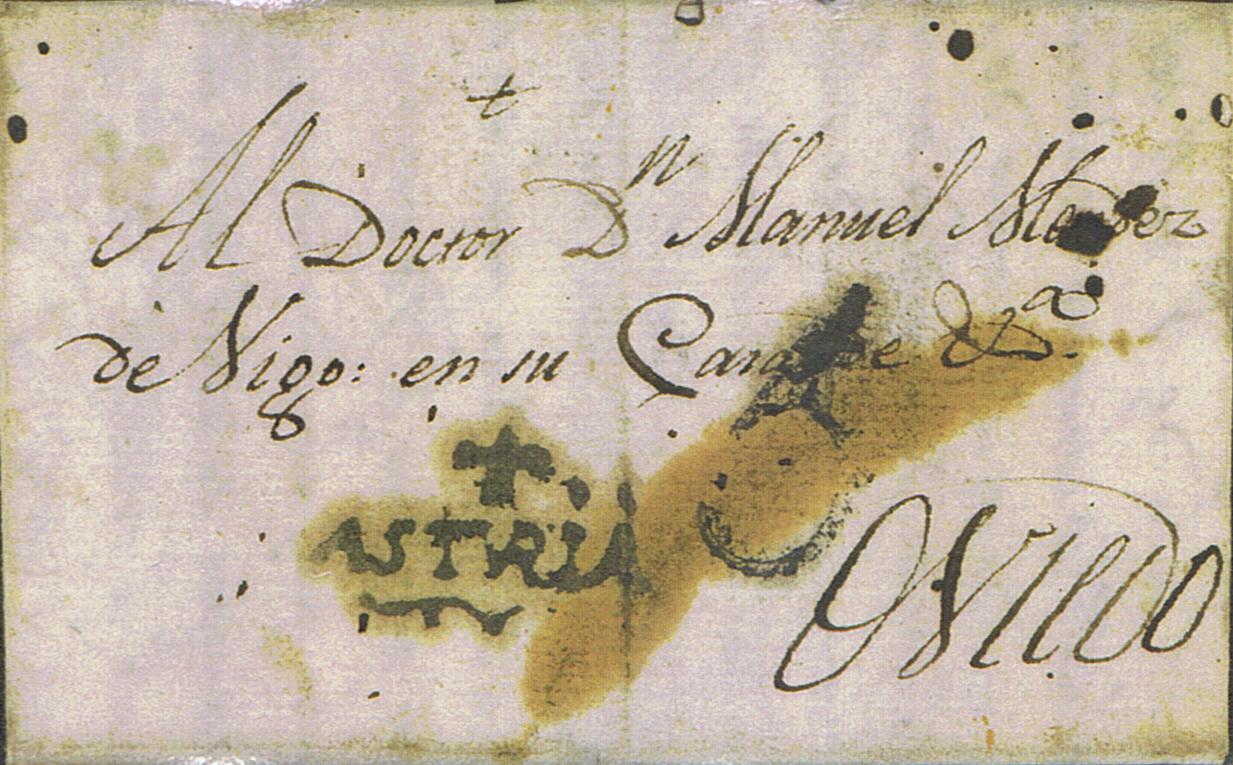 Al Doctor Dn Manuel Mendez
de Vigo: en su Casa de &a
ASTRIA
OViEDO